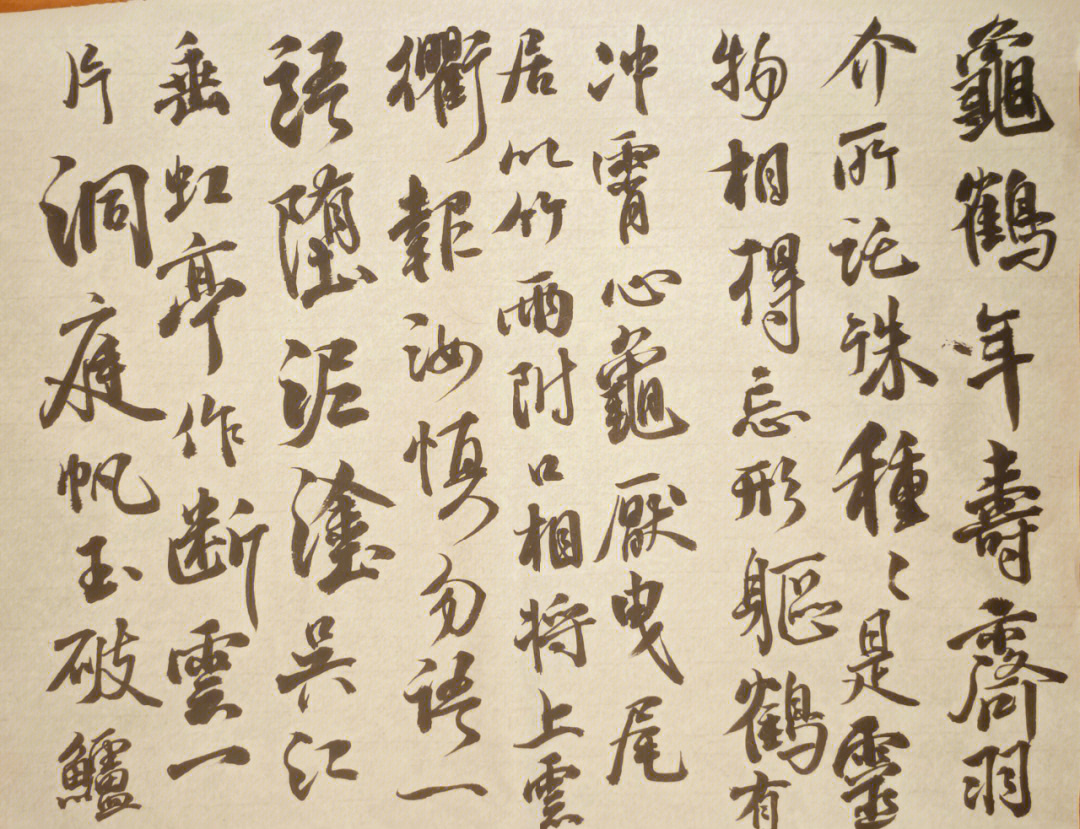 龜鶴年壽齊羽
介所託殊種〻是靈
物相得忘形軀鶴有
冲霄心龜厭曳尾
居以竹兩附口相將上雲
衢報汝慎勿語一
語墮泥塗吴江
垂虹亭作断雲一
片洞庭帆玉破鱸